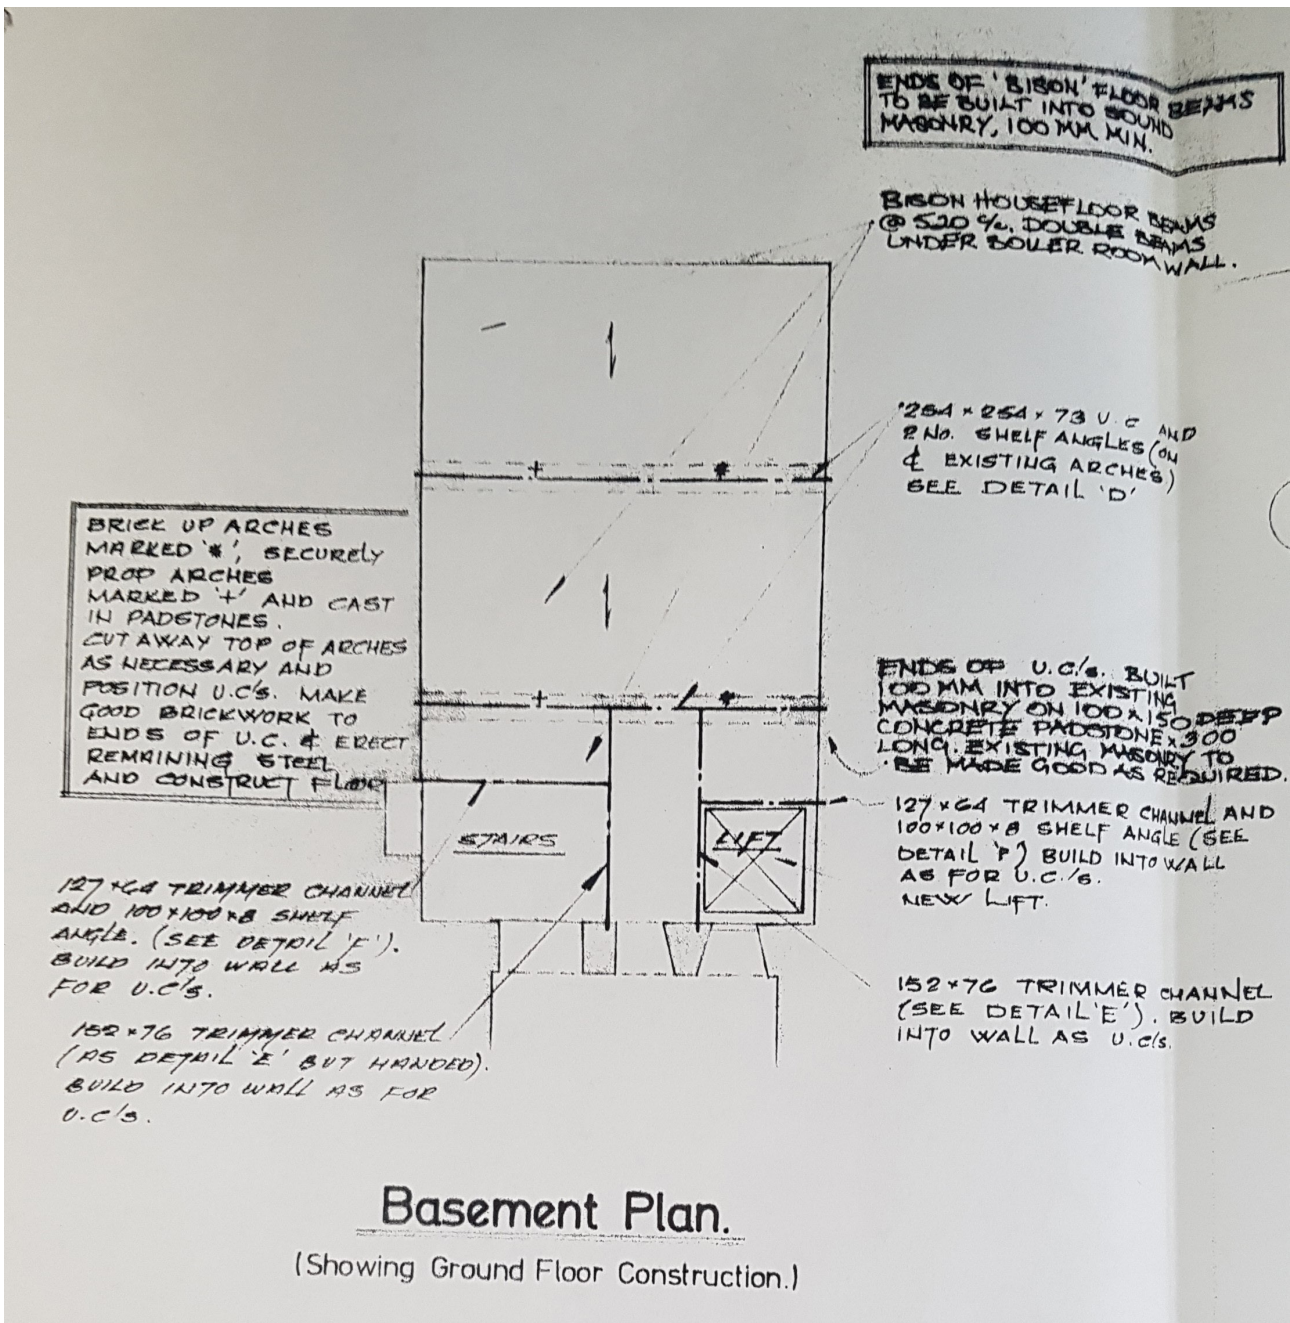 ENDS OF 'BISON' FLOOR BEAMS
TO BE BUILT INTO SOUND
MASONRY, 100 MM MIN.
BISON HOUSEFLOOR BEAMS
@ 520 c/c. DOUBLE BEAMS
UNDER BOILER ROOM WALL.
254 x 254 x 73 U.C AND
2 No. SHELF ANGLES (ON
℄ EXISTING ARCHES)
SEE DETAIL 'D'
BRICK UP ARCHES
MARKED '*', SECURELY
PROP ARCHES
MARKED '+' AND CAST
IN PADSTONES.
CUT AWAY TOP OF ARCHES
AS NECESSARY AND
POSITION U.C's. MAKE
GOOD BRICKWORK TO
ENDS OF U.C. & ERECT
REMAINING STEEL
AND CONSTRUCT FLOOR
ENDS OF U.C.'s. BUILT
100 MM INTO EXISTING
MASONRY ON 100 x 150 DEEP
CONCRETE PADSTONE x 300
LONG. EXISTING MASONRY TO
BE MADE GOOD AS REQUIRED.
STAIRS
LIFT
127 x 64 TRIMMER CHANNEL AND
100 x 100 x 8 SHELF ANGLE (SEE
DETAIL 'F') BUILD INTO WALL
AS FOR U.C.'s.
NEW LIFT.
127 x 64 TRIMMER CHANNEL
AND 100 x 100 x 8 SHELF
ANGLE. (SEE DETAIL 'F').
BUILD INTO WALL AS
FOR U.C's.
152 x 76 TRIMMER CHANNEL
(SEE DETAIL 'E'). BUILD
INTO WALL AS U.C's.
152 x 76 TRIMMER CHANNEL
(AS DETAIL 'E' BUT HANDED).
BUILD INTO WALL AS FOR
U.C's.
Basement Plan.
(Showing Ground Floor Construction.)